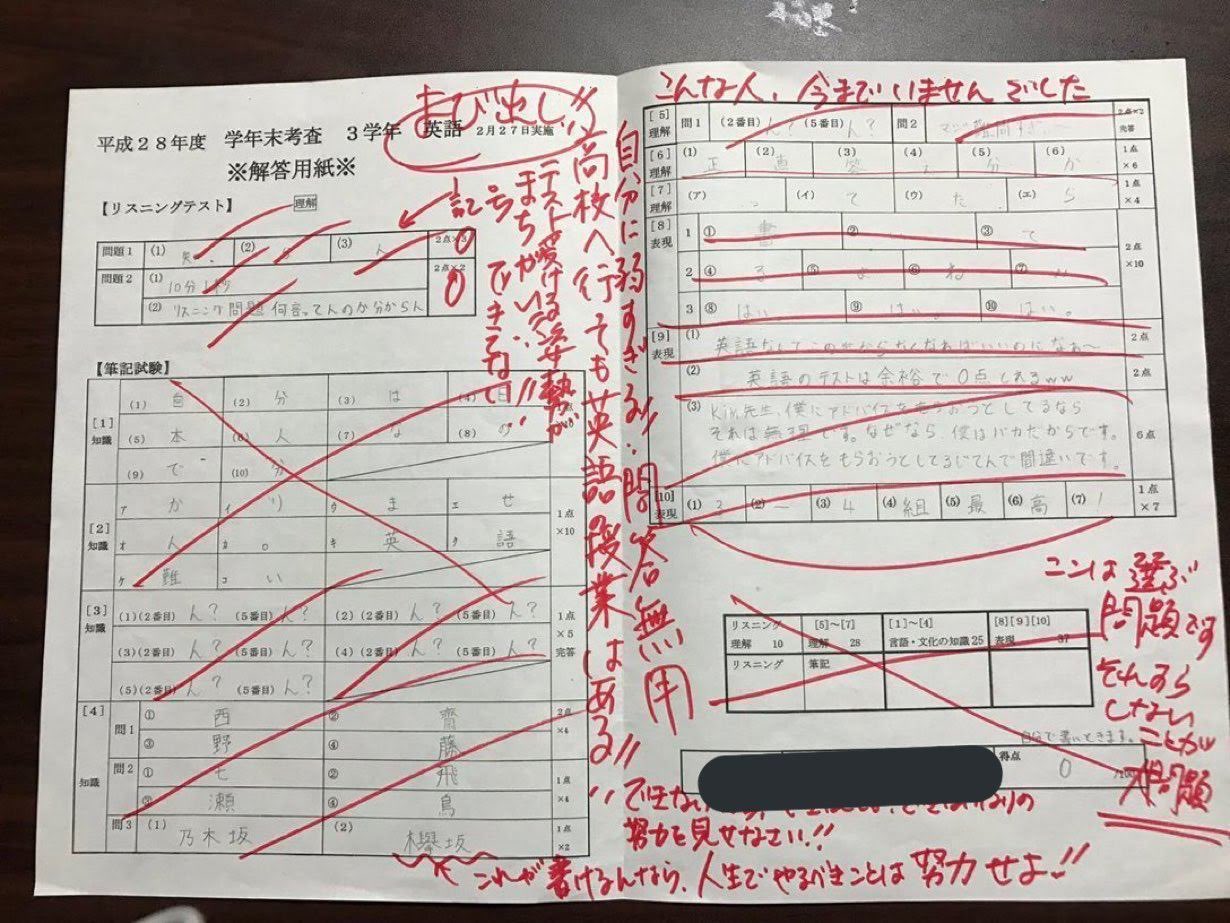 よび出し!!
平成28年度 学年末考査 3学年 英語 2月27日実施
※解答用紙※
【リスニングテスト】 理解
問題1 (1) 矢、 (2) (3) ん 2点×3 0
問題2 (1) 10分 2点×2 0
(2) リスニング問題何言ってんのか分からん
【筆記試験】
[1] 知識
(1) 自 (2) 分 (3) は (4) 日
(5) 本 (6) 人 (7) な (8) の
(9) で (10) 分
[2] 知識 1点×10
ア か イ り ウ ま エ せ
オ ん カ 。 キ 英 ク 語
ケ 難 コ い
[3] 知識 1点×5 完答
(1)(2番目) ん? (5番目) ん? (2)(2番目) ん? (5番目) ん?
(3)(2番目) ん? (5番目) ん? (4)(2番目) ん? (5番目) ん?
(5)(2番目) ん? (5番目) ん?
[4] 知識
問1 ① 西 ② 齋 2点×4
③ 野 ④ 藤
問2 ① 七 ② 飛 1点×4
③ 瀬 ④ 鳥
問3 (1) 乃木坂 (2) 欅坂 1点×2
記号
まちがい!!
テスト受ける姿勢が
できてない!!
高校へ行そても英語の授業はある!!
自分に弱すぎる!!問答無用
こんな人、今までいませんでした
[5] 理解 問1 (2番目) ん? (5番目) ん? 問2 マジ難問すぎ 2点×2 完答
[6] 理解 (1) 正 (2) 直 (3) 答 (4) え (5) 分 (6) か 1点×6
[7] 理解 (ア) っ (イ) て (ウ) た (エ) ら 1点×4
[8] 表現 2点×10
1 ① 書 ② い ③ て
2 ④ る ⑤ よ ⑥ ね ⑦
3 ⑧ はい。 ⑨ はい。 ⑩ はい。
[9] 表現
(1) 英語なんてこの世からなくなればいいのになぁ~ 2点
(2) 英語のテストは余裕で0点とれるww 2点
(3) Kin先生、僕にアドバイスをもらおうとしてるなら
それは無理です。なぜなら、僕はバカだからです。 6点
僕にアドバイスをもらおうとしてるじてんで間違いです。
[10] 表現 (1) 3 (2) ー (3) 4 (4) 組 (5) 最 (6) 高 (7) ! 1点×7
リスニング 理解 10 [5]~[7] 理解 28 [1]~[4] 言語・文化の知識25 [8][9][10] 表現 37
リスニング 筆記
ここは選ぶ
問題です
それすら
しない
ことが
大問題
自分で書いときます。
得点 0 /100
できない
努力を見せなさい!!
これが書けるんなら、人生でやるべきことは努力せよ!!